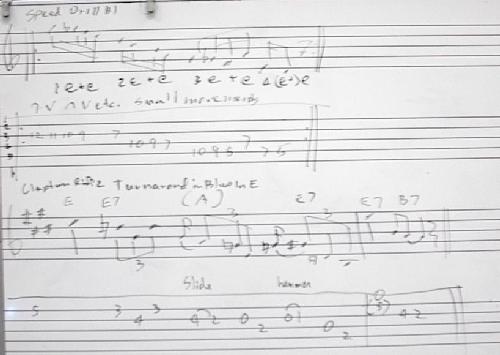 Speed Drill B1
1 e + e 2 e + e 3 e + e 4 (e +) e
etc. small movements
12 11 10 9 7 10 9 7 10 9 5 7 7 5
Turnaround in Blues in E
E E7 (A) E7 E7 B7
3 3 3
Slide hammer
5 3 4 3 4 2 0 2 0 1 0 2 0 4 2